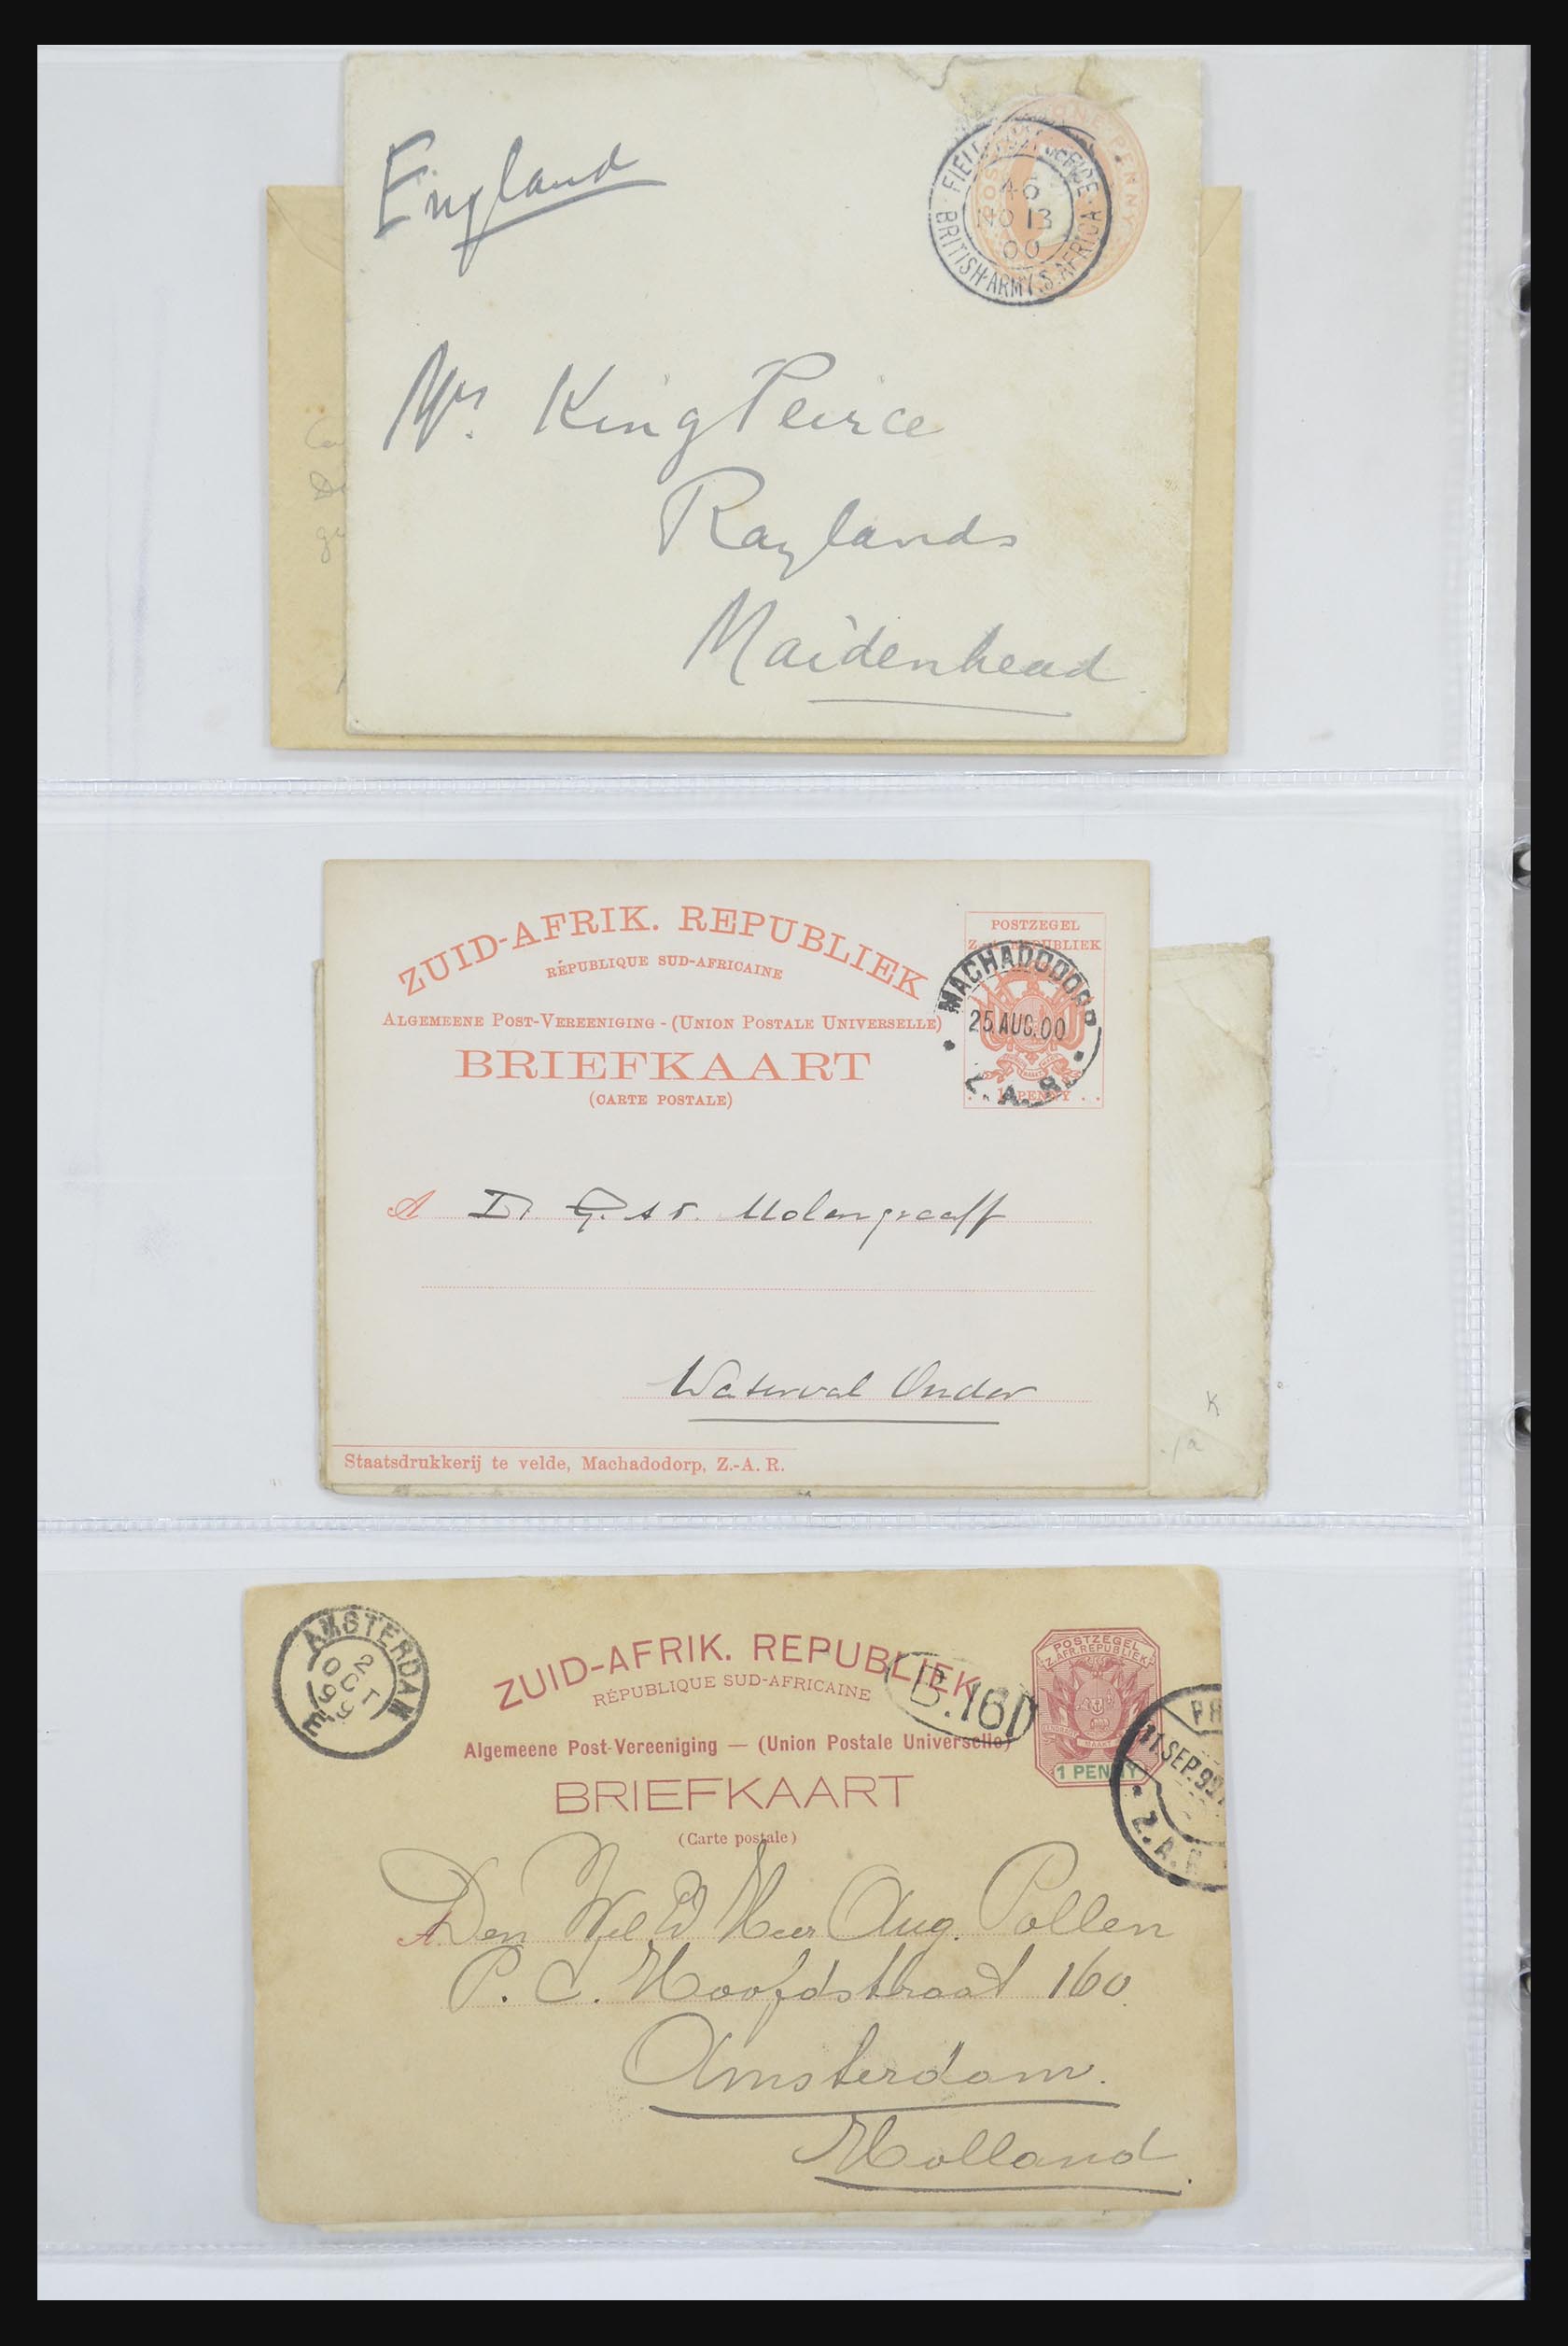 England
ONE PENNY
FIELD POST OFFICE
46
NO 13
00
BRITISH ARMY S. AFRICA
Mrs. King Peirce
Raylands
Maidenhead
ZUID-AFRIK. REPUBLIEK
RÉPUBLIQUE SUD-AFRICAINE
ALGEMEENE POST-VEREENIGING - (UNION POSTALE UNIVERSELLE)
BRIEFKAART
(CARTE POSTALE)
POSTZEGEL
Z. A. REPUBLIEK
PENNY
MACHADODORP
25 AUG. 00
Z. A. R.
A Dr. G. A. F. Molengraaff
Waterval Onder
Staatsdrukkerij te velde, Machadodorp, Z.-A. R.
K
AMSTERDAM
2
OCT
99
E
ZUID-AFRIK. REPUBLIEK
RÉPUBLIQUE SUD-AFRICAINE
Algemeene Post-Vereeniging — (Union Postale Universelle)
BRIEFKAART
(Carte postale)
B.16D
POSTZEGEL
Z. AFR. REPUBLIEK
1 PENNY
PR
11 SEP. 99
Z. A. R
A Den Wel Ed Heer Aug. Pollen
P. C. Hoofdstraat 160
Amsterdam.
Holland.